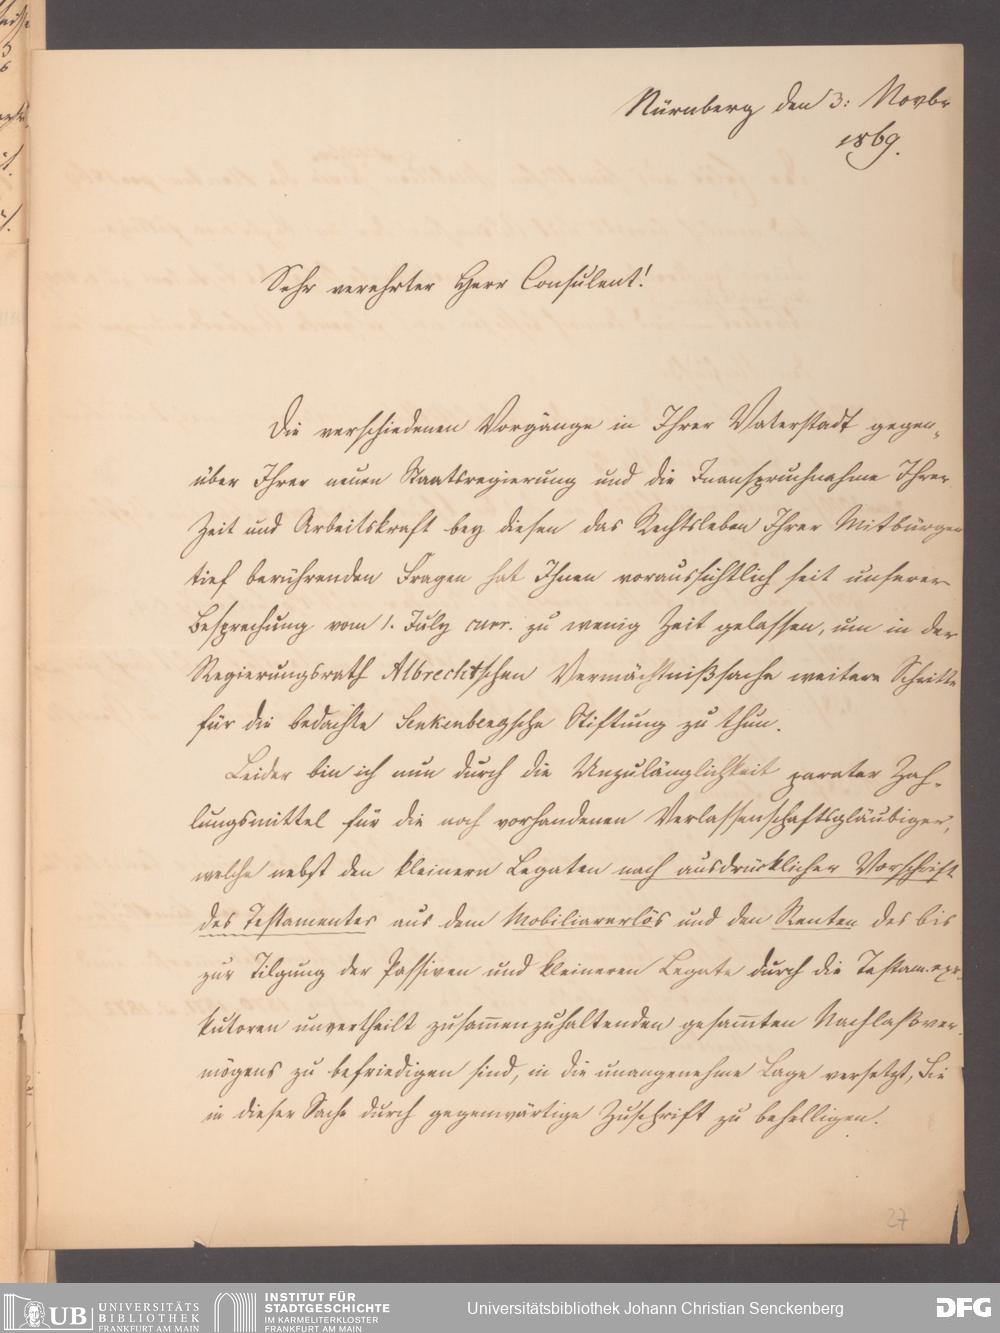 Nürnberg den 3: Novbr
1869.
Sehr verehrter Herr Consulent!
Die verschiedenen Vorgänge in Ihrer Vaterstadt gegen-
über Ihrer neuen Staatsregierung und die Inanspruchnahme Ihrer
Zeit und Arbeitskraft bey diesen das Rechtsleben Ihrer Mitbürger
tief berührenden Fragen hat Ihnen voraussichtlich seit unserer
Besprechung vom 1. July curr. zu wenig Zeit gelassen, um in der
Regierungsrath Albrecht'schen Vermächtnißsache weitere Schritte
für die bedachte Senkenbergsche Stiftung zu thun.
Leider bin ich nun durch die Unzulänglichkeit parater Zah-
lungsmittel für die noch vorhandenen Verlassenschaftsgläubiger,
welche nebst den kleinern Legaten nach ausdrücklicher Vorschrift
des Testamentes aus dem Mobiliarerlös und den Renten des bis
zur Tilgung der Passiven und kleineren Legate durch die Testam.exe-
kutoren unvertheilt zusammenzuhaltenden gesammten Nachlaßver-
mögens zu befriedigen sind, in die unangenehme Lage versetzt, Sie
in dieser Sache durch gegenwärtige Zuschrift zu behelligen.
27
UB UNIVERSITÄTS
BIBLIOTHEK
FRANKFURT AM MAIN
INSTITUT FÜR
STADTGESCHICHTE
IM KARMELITERKLOSTER
FRANKFURT AM MAIN
Universitätsbibliothek Johann Christian Senckenberg
DFG